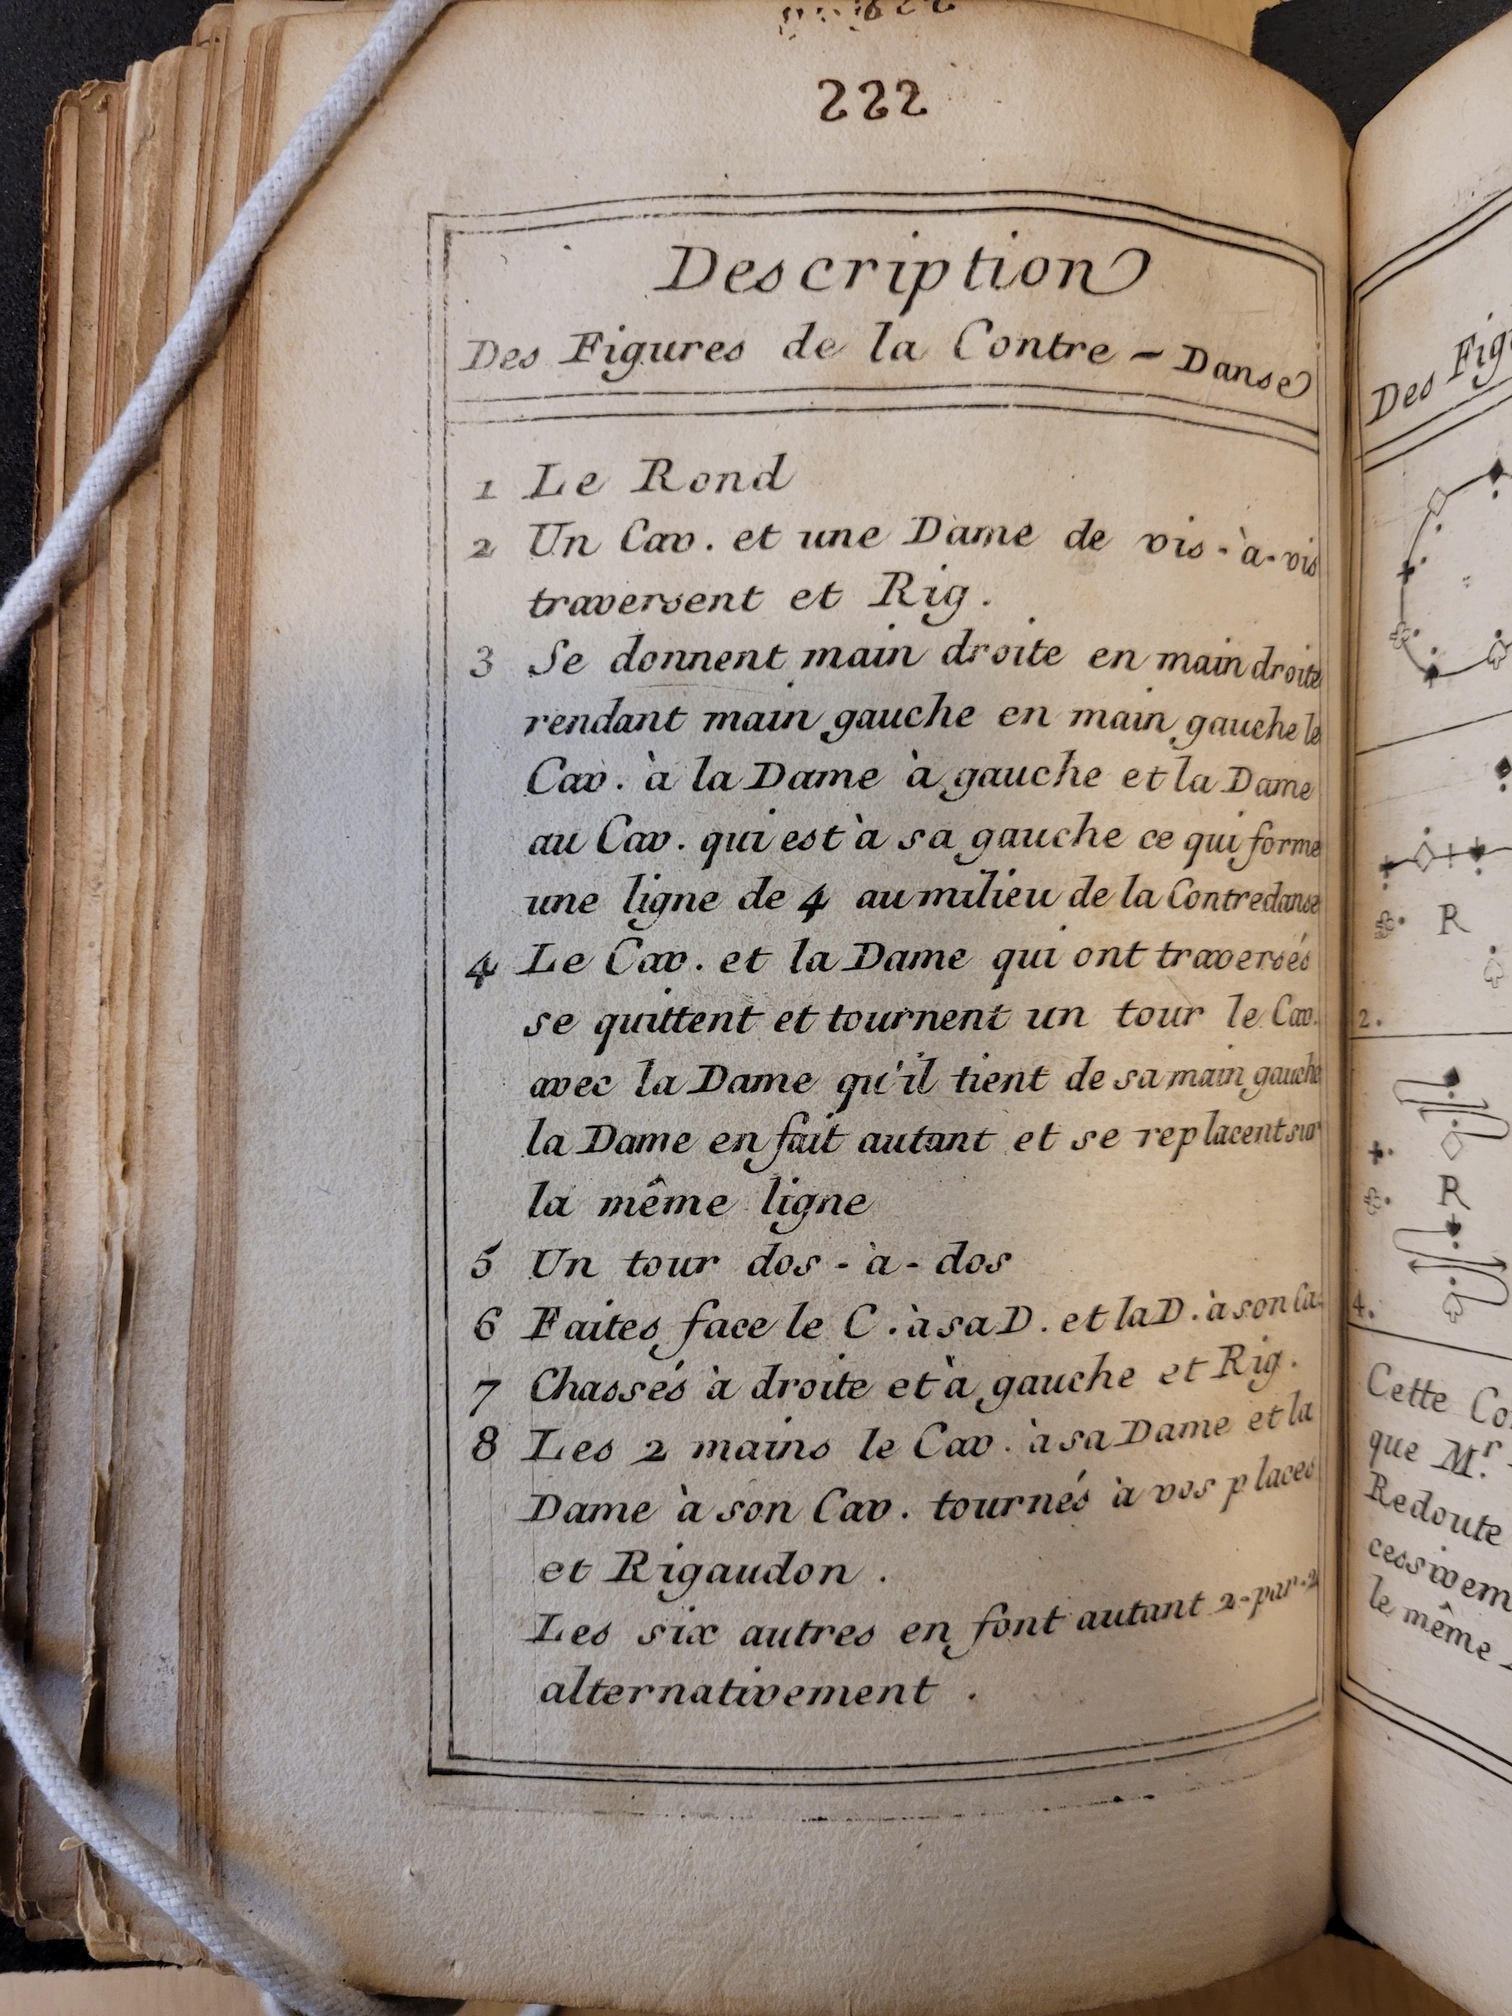 222
Description
Des Figures de la Contre-Danse
1 Le Rond
2 Un Cav. et une Dame de vis-à-vis
traversent et Rig.
3 Se donnent main droite en main droite
rendant main gauche en main gauche le
Cav. à la Dame à gauche et la Dame
au Cav. qui est à sa gauche ce qui forme
une ligne de 4 au milieu de la Contredanse
4 Le Cav. et la Dame qui ont traversés
se quittent et tournent un tour le Cav.
avec la Dame qu'il tient de sa main gauche
la Dame en fait autant et se replacent sur
la même ligne
5 Un tour dos-à-dos
6 Faites face le C. à sa D. et la D. à son Ca.
7 Chassés à droite et à gauche et Rig.
8 Les 2 mains le Cav. à sa Dame et la
Dame à son Cav. tournés à vos places
et Rigaudon.
Les six autres en font autant 2-par-2
alternativement.
Des Fig
R
2.
R
4.
Cette Co
que Mr.
Redoute
cessivem
le même